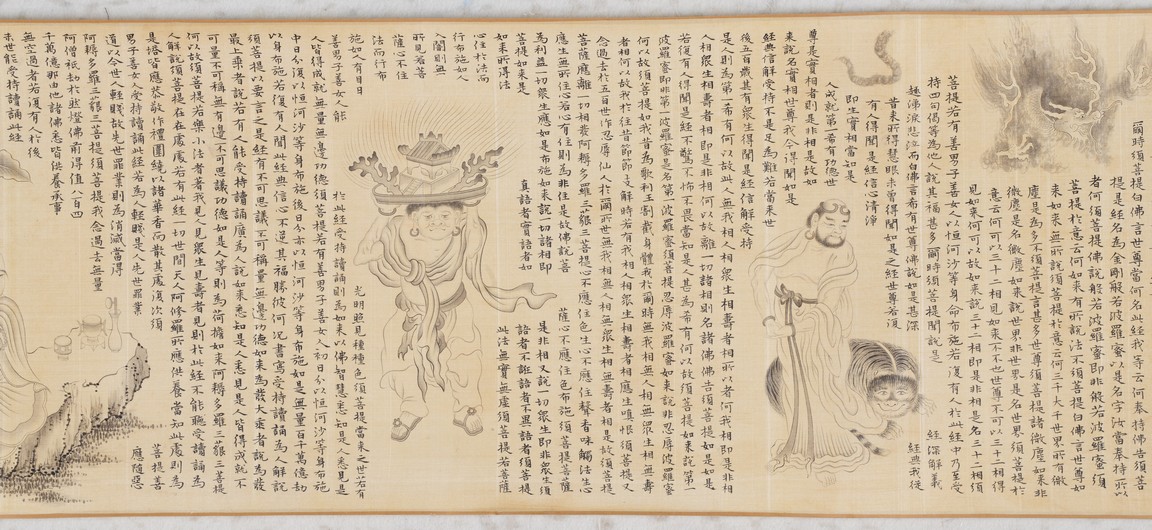 爾時須菩提白佛言世尊當何名此經我等云何奉持佛告須菩
提是經名為金剛般若波羅蜜以是名字汝當奉持所以
者何須菩提佛說般若波羅蜜即非般若波羅蜜須
菩提於意云何如來有所說法不須菩提白佛言世尊如
來如來無所說須菩提於意云何三千大千世界所有微
塵是為多不須菩提言甚多世尊須菩提諸微塵如來說非
微塵是名微塵如來說世界非世界是名世界須菩提於
意云何可以三十二相見如來不不也世尊不可以三十二相得
見如來何以故如來說三十二相即是非相是名三十二相須
菩提若有善男子善女人以恒河沙等身命布施若復有人於此經中乃至受
持四句偈等為他人說其福甚多爾時須菩提聞說是 經深解義
趣涕淚悲泣而白佛言希有世尊佛說如是甚深 經典我從
昔來所得慧眼未曾得聞如是之經世尊若復
有人得聞是經信心清淨
即生實相當知是
人成就第一希有功德世
尊是實相者則是非相是故如
來說名實相世尊我今得聞如是
經典信解受持不足為難若當來世
後五百歲其有眾生得聞是經信解受持
是人則為第一希有何以故此人無我相人相眾生相壽者相所以者何我相即是非相
人相眾生相壽者相即是非相何以故離一切諸相則名諸佛佛告須菩提如是如是
若復有人得聞是經不驚不怖不畏當知是人甚為希有何以故須菩提如來說第一
波羅蜜即非第一波羅蜜是名第一波羅蜜須菩提忍辱波羅蜜如來說非忍辱波羅蜜
何以故須菩提如我昔為歌利王割截身體我於爾時無我相無人相無眾生相無壽
者相何以故我於往昔節節支解時若有我相人相眾生相壽者相應生瞋恨須菩提又
念過去於五百世作忍辱仙人於爾所世無我相無人相無眾生相無壽者相是故須菩提
菩薩應離一切相發阿耨多羅三藐三菩提心不應住色生心不應住聲香味觸法生心
應生無所住心若心有住則為非住是故佛說菩 薩心不應住色布施須菩提菩薩
為利益一切眾生應如是布施如來說一切諸相即 是非相又說一切眾生即非眾生須
菩提如來是 真語者實語者如 語者不誑語者不異語者須菩提
如來所得法 此法無實無虛須菩提若菩薩
心住於法而
行布施如人
入闇則無
所見若菩
薩心不住
法而行布
施如人有目日 光明照見種種色須菩提當來之世若有
善男子善女人能 於此經受持讀誦則為如來以佛智慧悉知是人悉見是
人皆得成就無量無邊功德須菩提若有善男子善女人初日分以恒河沙等身布施
中日分復以恒河沙等身布施後日分亦以恒河沙等身布施如是無量百千萬億劫
以身布施若復有人聞此經典信心不逆其福勝彼何況書寫受持讀誦為人解說
須菩提以要言之是經有不可思議不可稱量無邊功德如來為發大乘者說為發
最上乘者說若有人能受持讀誦廣為人說如來悉知是人悉見是人皆得成就不
可量不可稱無有邊不可思議功德如是人等則為荷擔如來阿耨多羅三藐三菩提
何以故須菩提若樂小法者著我見人見眾生見壽者見則於此經不能聽受讀誦為
人解說須菩提在在處處若有此經一切世間天人阿修羅所應供養當知此處則為
是塔皆應恭敬作禮圍繞以諸華香而散其處復次須 菩提善
男子善女人受持讀誦此經若為人輕賤是人先世罪業 應墮惡
道以今世人輕賤故先世罪業則為消滅當得
阿耨多羅三藐三菩提須菩提我念過去無量
阿僧祇劫於然燈佛前得值八百四
千萬億那由他諸佛悉皆供養承事
無空過者若復有人於後
末世能受持讀誦此經